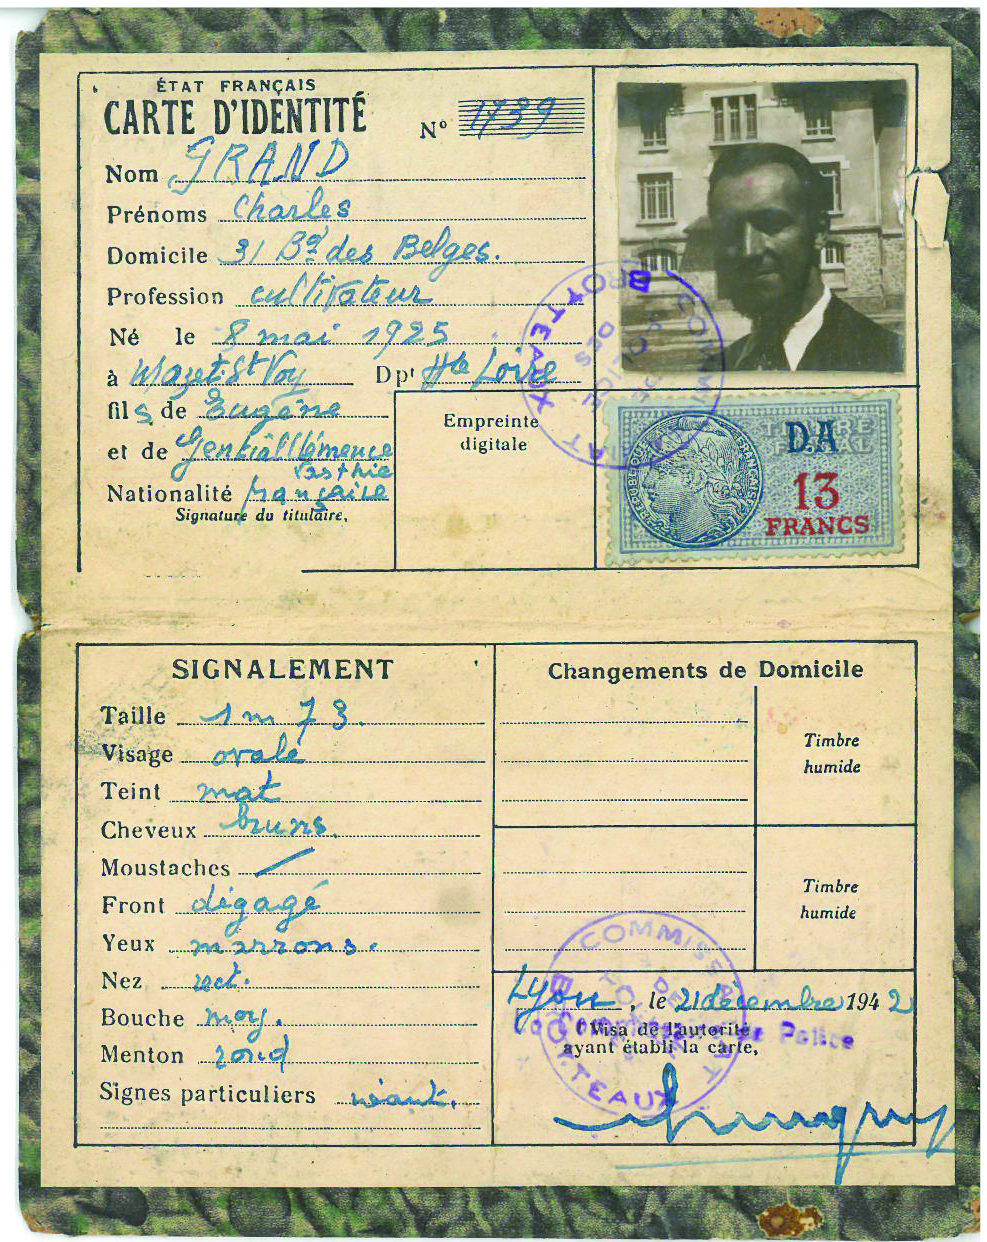 ÉTAT FRANÇAIS
CARTE D'IDENTITÉ
Nº 1739
Nom GRAND
Prénoms Charles
Domicile 31 Bd des Belges.
Profession cultivateur
Né le 8 mai 1925
à Mazet St Voy Dpt Hte Loire
fils de Eugène
et de Gentiâl Clémence
Nationalité française
Signature du titulaire,
Empreinte
digitale
COMMISSARIAT DE POLICE DES BROTTEAUX
RÉPUBLIQUE FRANÇAISE
TIMBRE FISCAL
D.A
13
FRANCS
SIGNALEMENT
Taille 1 m 73.
Visage ovale
Teint mat
Cheveux bruns.
Moustaches /
Front dégagé
Yeux marrons.
Nez rect.
Bouche moy.
Menton rond
Signes particuliers néant.
Changements de Domicile
Timbre
humide
Timbre
humide
Lyon, le 21 décembre 1942
Visa de l'autorité
ayant établi la carte,
de Police
COMMISSARIAT DE BROTTEAUX